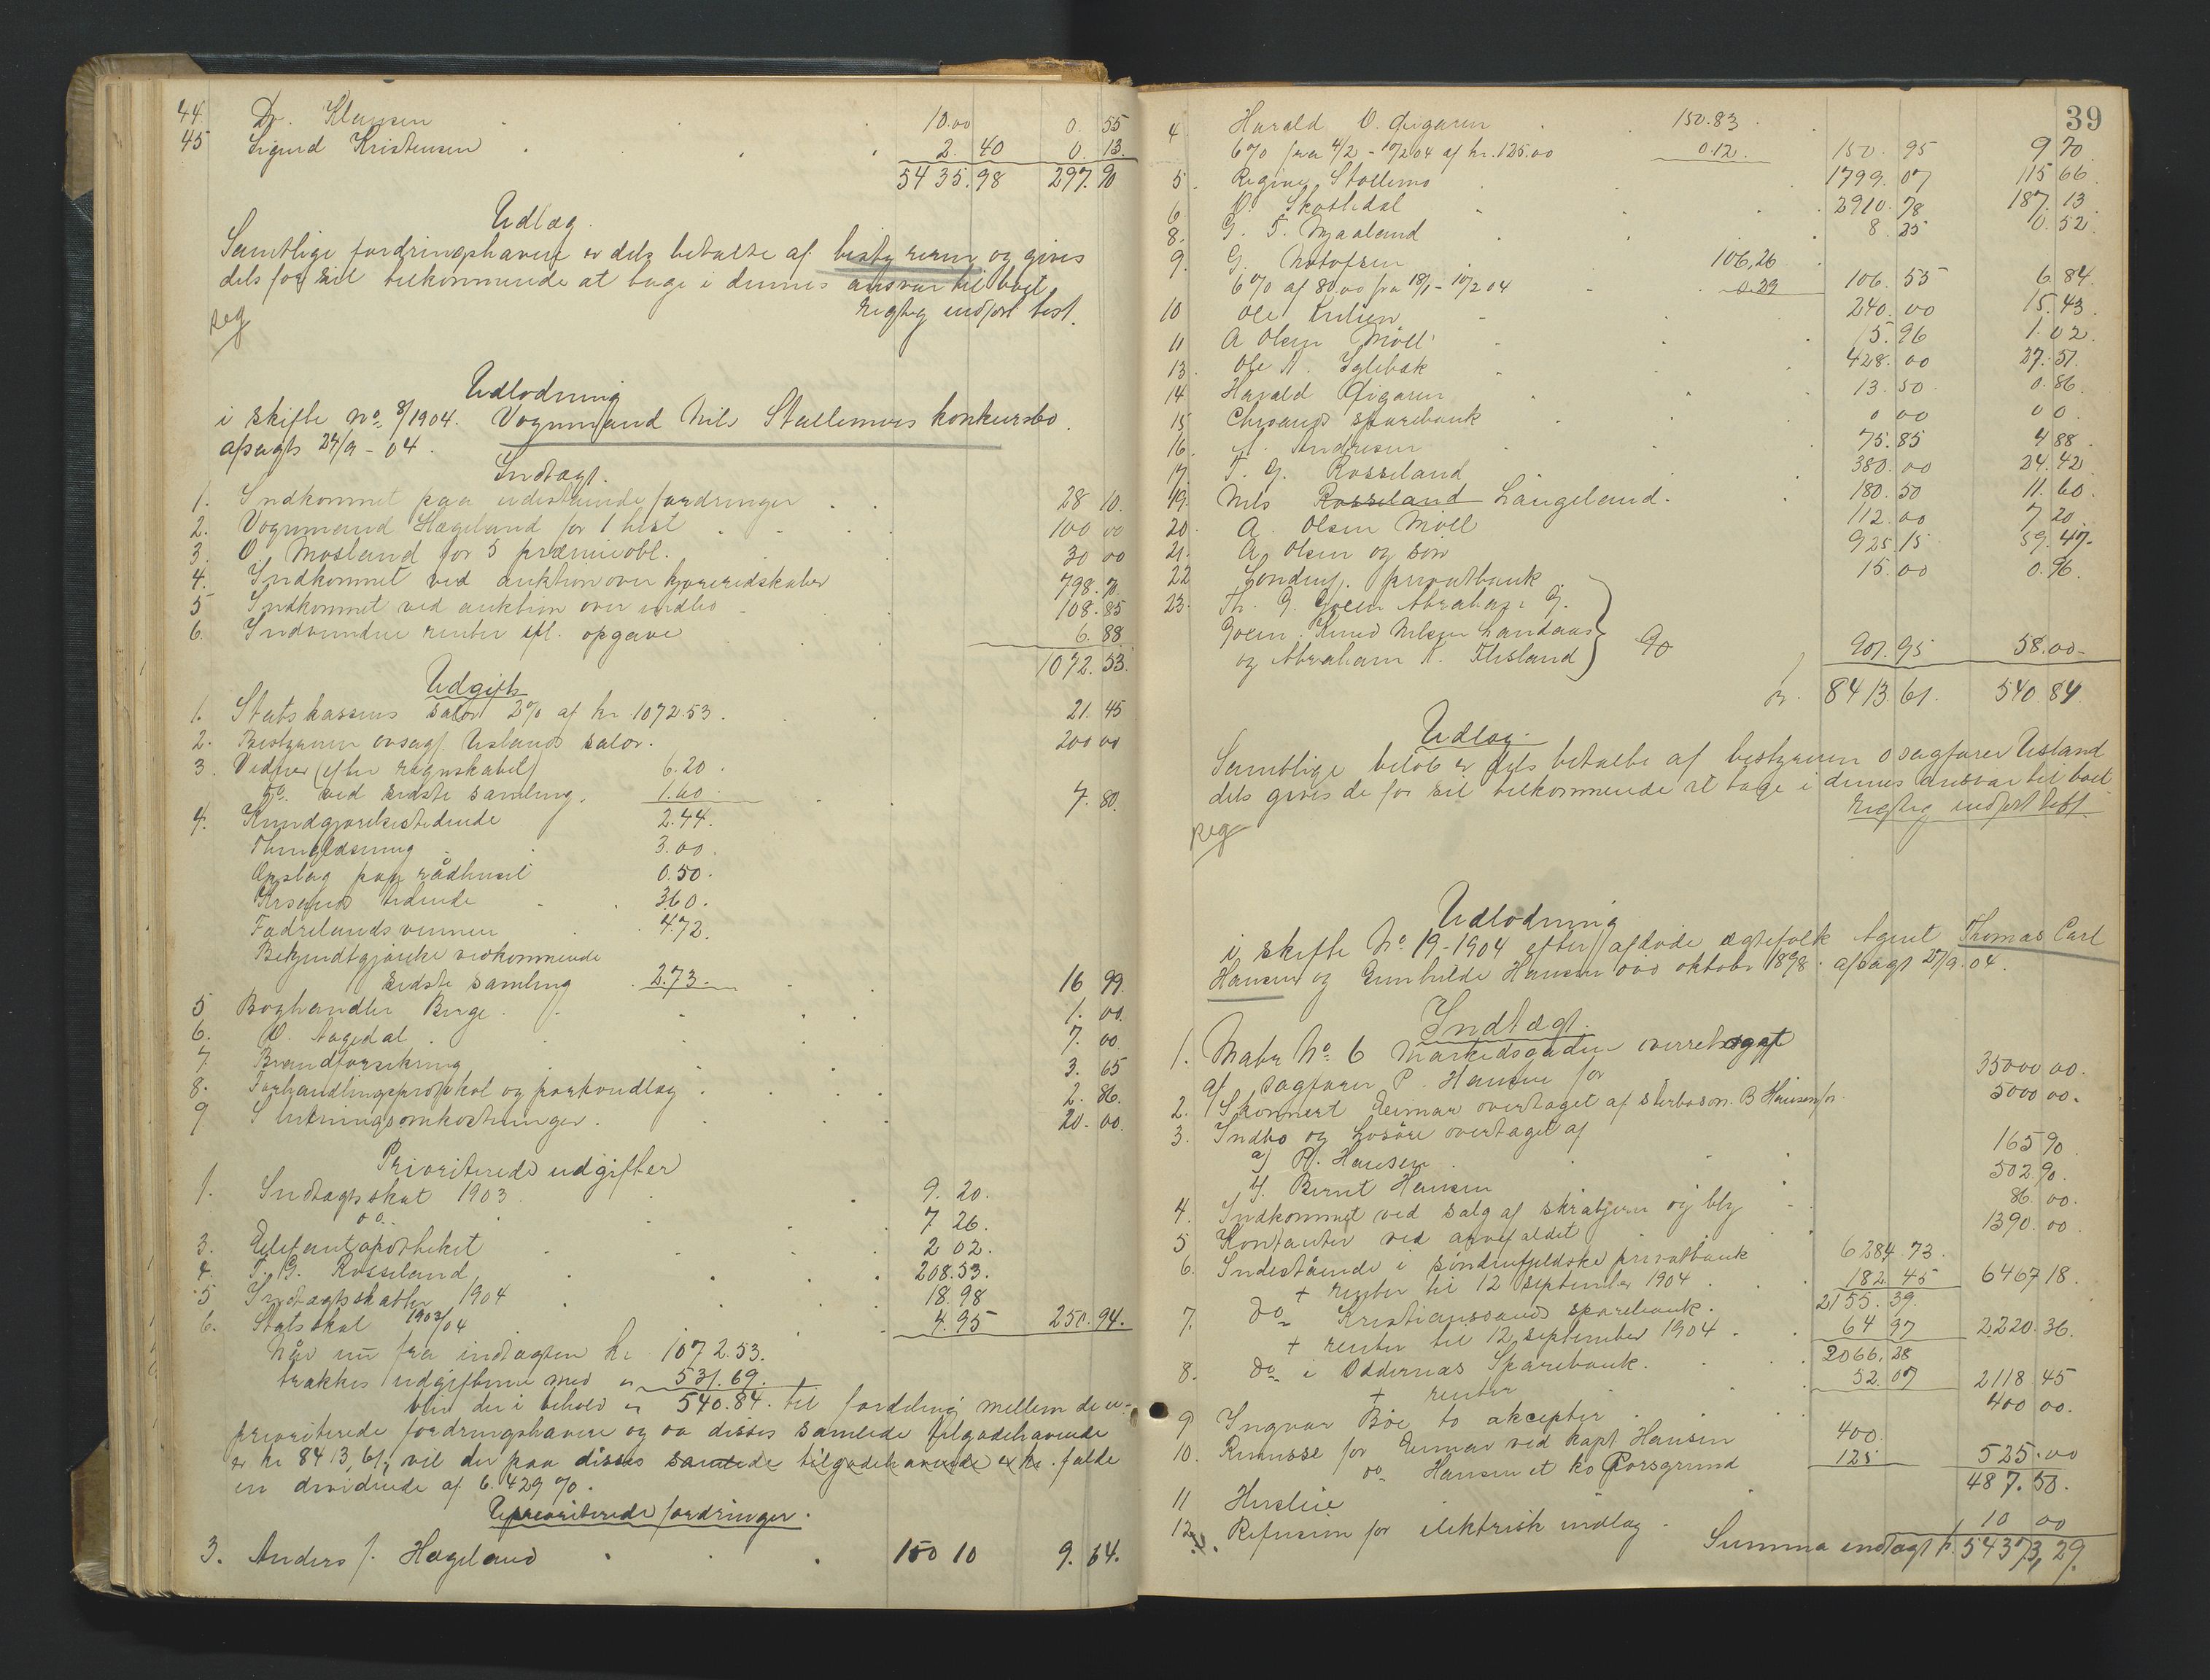 44 Dr. Klausen 10.00 0.55
45 Sigurd Kristensen 2.40 0.13.
5435.98 297.90
Udlæg.
Samtlige fordringshavere er dels betalte af bestyreren og gives
dels for sit vedkommende at tage i dennes ansvar til boet.
Rigtig indført test.
Reg
Udlodning
i skifte No. 8/1904. Vognmand Nils Stallemoes konkursbo.
afsagt 24/9-04.
Indtægt.
1. Indkommet paa udestaaende fordringer 28 10.
2. Vognmand Hægeland for 1 hest 100 00
3. O. Mosland for 5 præmieobl. 30 00
4. Indkommet ved auktion over kjøreredskaber 798.70
5 Indkommet ved auktion over indbo 108.85
6. Indvundne renter efl. opgave 6.88
1072.53.
Udgift
1. Statskassens salær 2% af kr. 1072.53. 21.45
2. Bestyreren ovsagf. Uslands salær. 200 00
3. Vidner (efter regnskabet) 6.20
do. ved sidste samling. 1.60 7.80.
4. Kundgjørelsestidende 2.44.
Thinglæsning 3.00.
Opslag paa rådhuset 0.50.
Krsands tidende 3.60.
Fædrelandsvennen 4.72.
Bekjendtgjørelse vedkommende
sidste samling 2.73. 16 99.
5 Boghandler Berge 1.00.
6. O. Aagedal 7.00
7 Brandforsikring 3.65
8. Forhandlingsprotokol og portoudlæg 2.86.
9 Slutningsomkostninger. 20.00.
Prioriterede udgifter
1. Indtægtsskat 1903. 9.20.
do. 7 26.
3. Elefantapotheket 2 02.
4. T. G. Rosseland 208.53.
5 Indtægtsskatter 1904 18.98
6. Statsskat 1903/04 4.95 250.94.
Når nu fra indtægten kr 1072.53.
trækkes udgifterne med " 531.69.
blir der i behold " 540.84. til fordeling mellem de u-
prioriterede fordringshavere og da disses samlede tilgodehavende
er kr 8413,61, vil der paa disses samlede tilgodehavende kr. falde
en dividende af 6.429 %.
Uprioriterede fordringer.
3. Anders J. Hægeland 150 10 9.64.
39
4. Harald O. Øigaren 150.83
6% fra 4/2 - 10/2 04 af kr. 125.00 0.12. 150.95 9 70
5. Regine Stallemo 1799.07 115 66
6 O. Skatledal 2910.78 187.13
8. G. T. Mjaaland 8.25 0.52.
9. G. Notofsen 106,26
6% af 80,00 fra 18/1 - 10/2 04 0.29 106.55 6.84.
10 Ole 240.00 15.43.
11 A Olsen Möll 15.96 1.02.
13. Ole A. Iglebæk 428.00 27.51.
14 Harald Øigaren 13.50 0.86.
15 Chrsands sparebank 0 00 0 0.
16. A. Andresen 75.85 4 88.
17. T. G. Rosseland 380.00 24.42
19. Nils Rosseland Langeland. 180.50 11.60.
20. A. Olsen Möll 112.00 7 20
21. A. Olsen og Søn 925.15 59.47.
22 Söndrefj. privatbank 15.00 0.96.
23. Th. G. Goem Abraham G.
Goem. Knud Nilsen Landaas
og Abraham K. Flisland 90 901.95 58.00-
kr. 8413.61. 540.84
Udlæg.
Samtlige beløb er dels betalte af bestyreren O sagfører Usland
dels gives de for sit vedkommende at tage i dennes ansvar til boet
Rigtig indført test.
Reg
Udlodning
i skifte No. 19-1904 efter afdøde ægtefolk Agent Thomas Carl
Hansen og Gunhilde Hansen død oktober 1898. afsagt 27/9.04.
Indtægt.
1. Matr No. 6 Markedsgaden overtaget
af sagfører P. Hansen for 35000 00.
2. Skonnert Reimar overtaget af sterbosøn. B Hansen for 5000 00.
3. Indbo og Løsøre overtaget af
a) P. Hansen 165 90
b. Bernt Hansen 502.90.
4. Indkommet ved salg af skrabjern og bly 86 00.
5 Kontanter ved arvefaldet 1390.00.
6. Indestående i søndrefjeldske privatbank 6284.73.
+ renter til 12 september 1904 182 45 6467 18.
7. do Kristianssands sparebank. 2155.39.
+ renter til 12 september 1904 64 97 2220.36.
8. do i Oddernæs Sparebank. 2066.38
+ renter 52.07 2118 45
9 Ingvar Böe to akcepter 400 00.
10. Remisse for Reimar ved kapt Hansen 400.
do. Hansen et ko Porsgrund 125 525.00
11 Husleie 487.50.
12. Refusion for elektrisk indlæg 10 00
Summa indtægt kr. 54373,29.